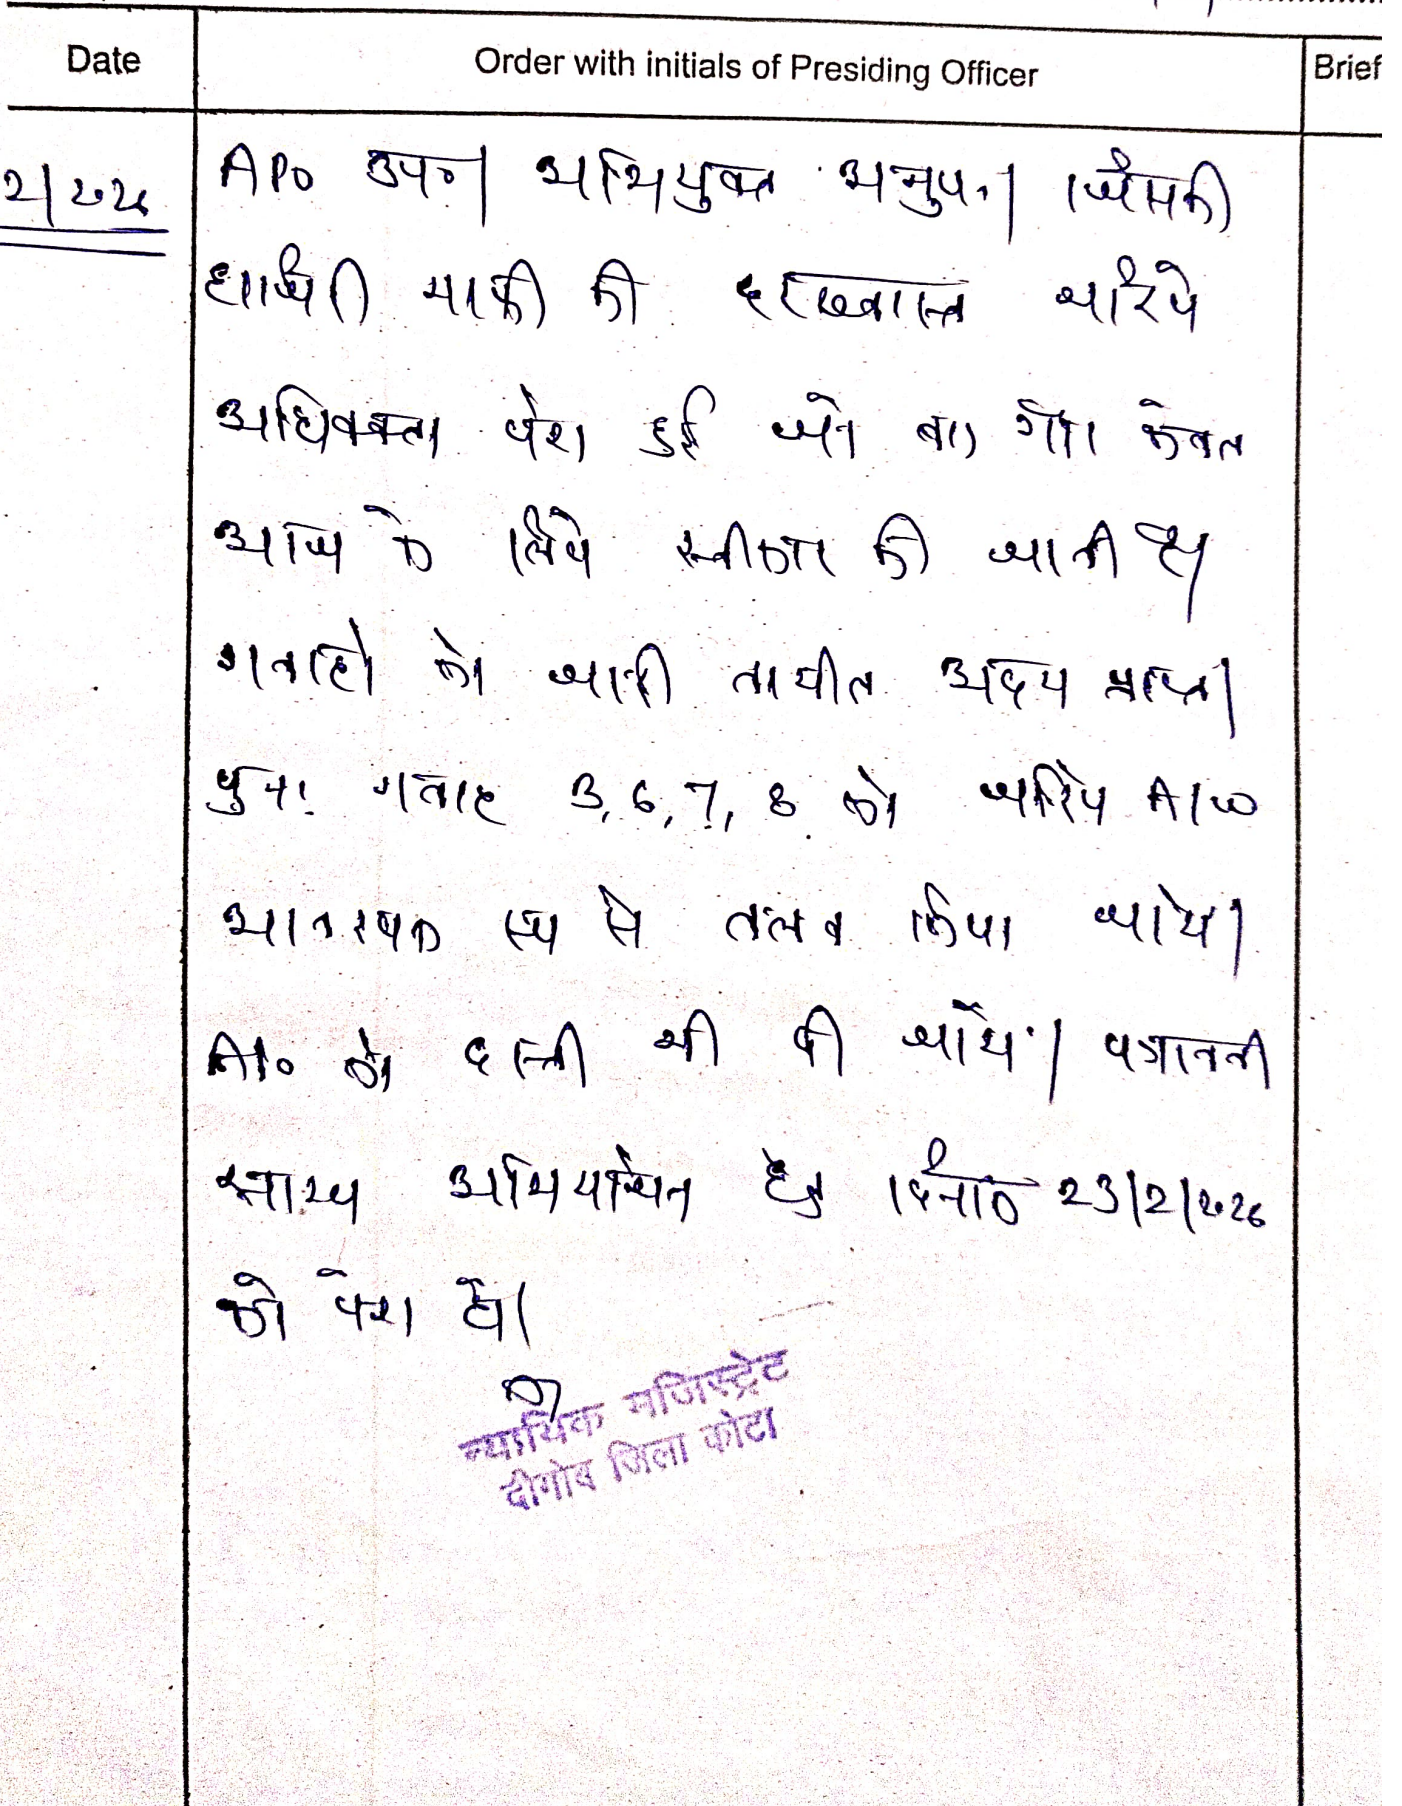 Date
Order with initials of Presiding Officer
Brief
2/2026
APO उप०। अभियुक्त अनुप०। जिसकी
हाजिरी माफी की दरख्वास्त जरिये
अधिवक्ता पेश हुई जो बाद गौर केवल
आज के लिये स्वीकार की जाती है।
गवाहो को जारी तामील अदम प्राप्त।
पुनः गवाह 3, 6, 7, 8 को जरिये A/W
आवश्यक रूप से तलब किया जाये।
को दस्ती भी दी जाये। पत्रावली
साक्ष्य अभियोजन हेतु दिनांक 23/2/2026
को पेश हो।
न्यायिक मजिस्ट्रेट
दीगोद जिला कोटा